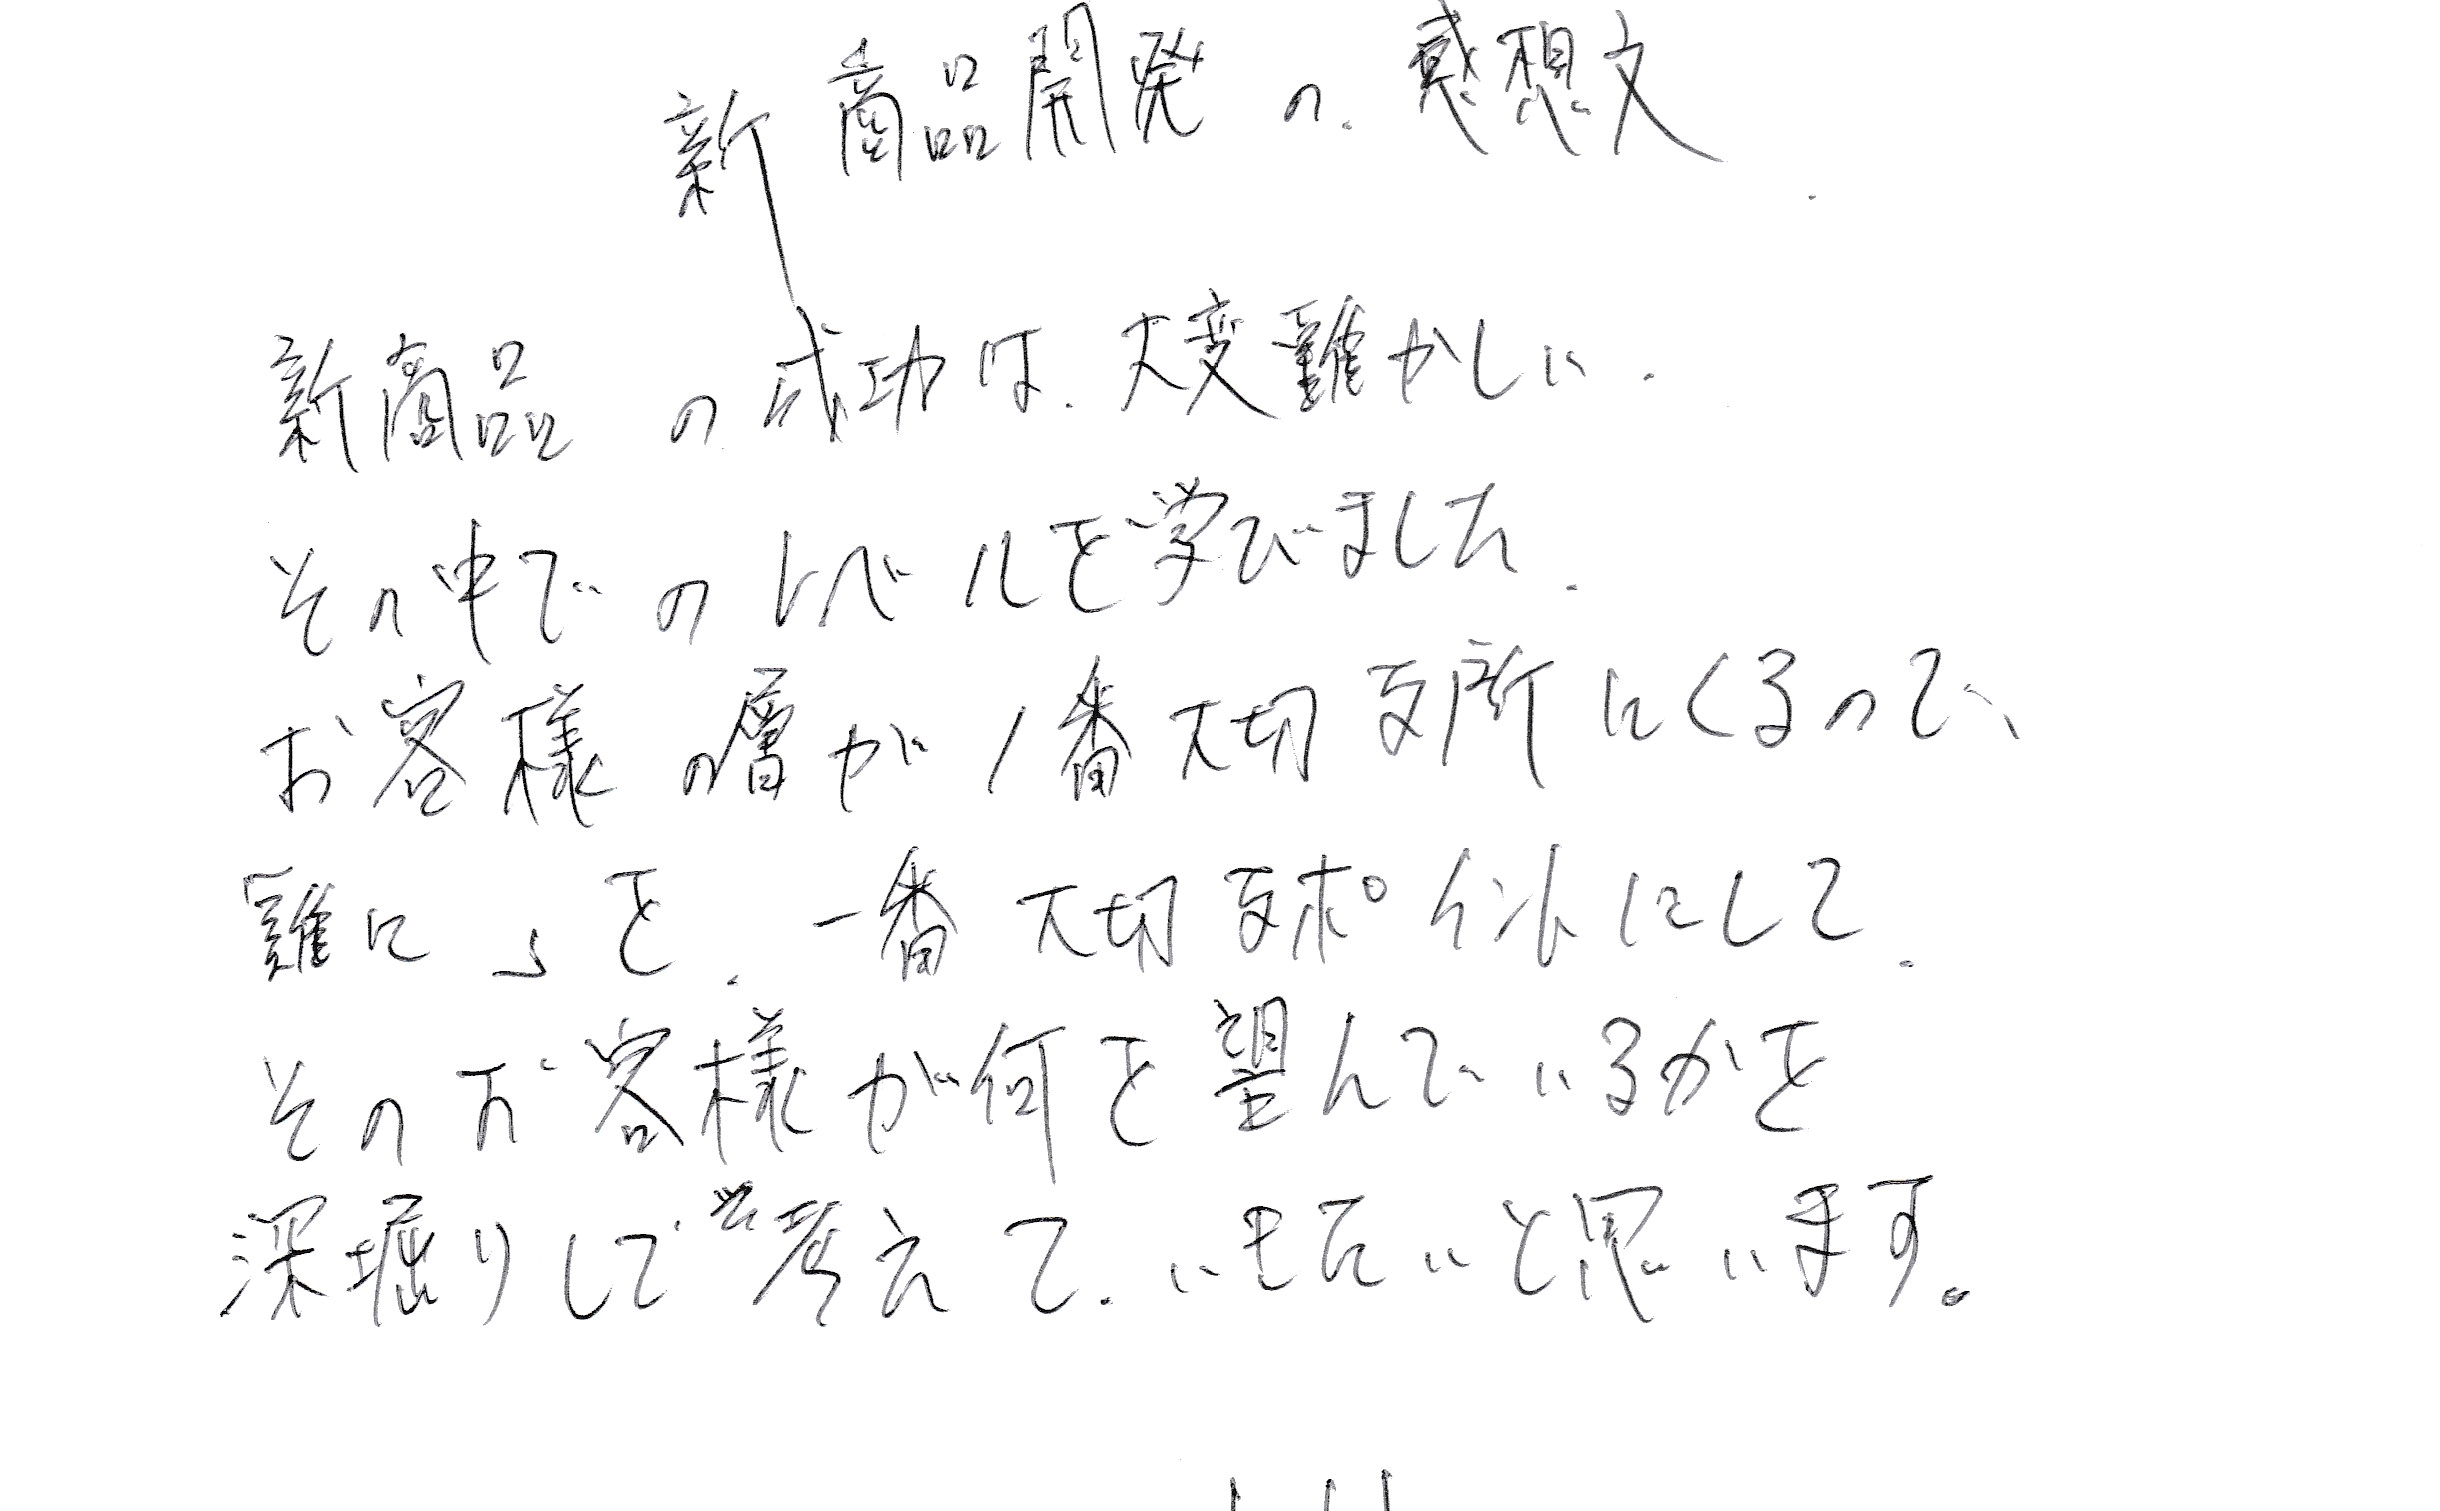 新商品開発の.感想文
新商品の成功は.大変難かしい.
その中でのレベルを学びました.
お客様の層が1番大切な所にくるので、
難に 」を.一番大切なポイントにして.
そのお客様が何を望んでいるかを
深堀りして考えて.いきたいと思います。